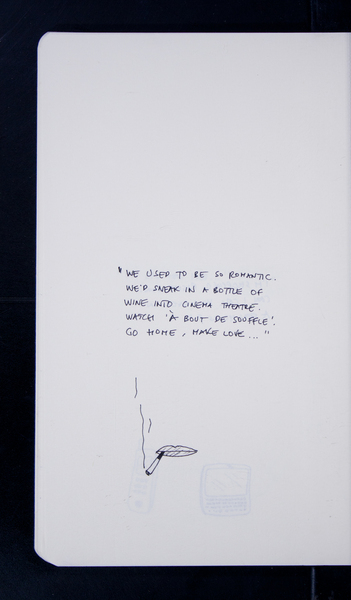 "WE USED TO BE SO ROMANTIC.
WE'D SNEAK IN A BOTTLE OF
WINE INTO CINEMA THEATRE.
WATCH 'À BOUT DE SOUFFLE'.
GO HOME, MAKE LOVE..."